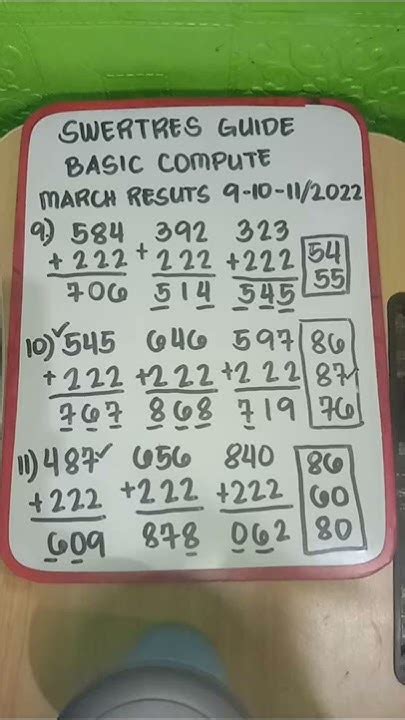 SWERTRES GUIDE
BASIC COMPUTE
MARCH RESUTS 9-10-11/2022
9.) 584 392 323
+222 +222 +222 54
706 514 545 55
10) ✓545 646 597 86
+222 +222 +222 87✓
767 868 719 76
11) 487✓ 656 840 86
+222 +222 +222 60
609 878 062 80